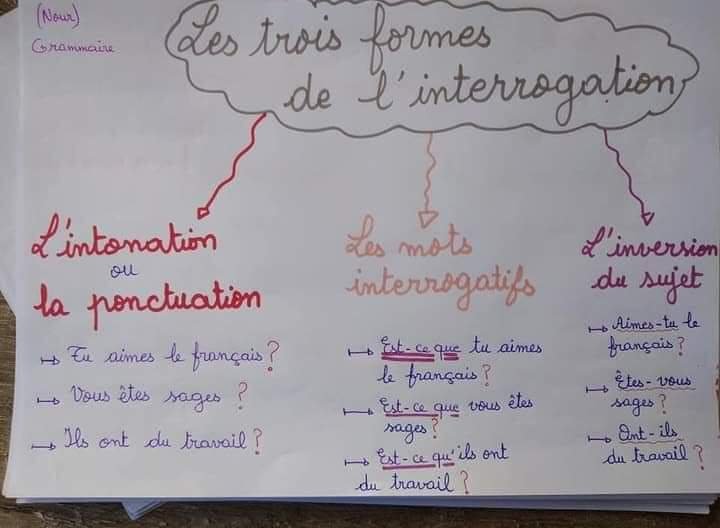 (Nour)
Grammaire
Les trois formes
de l'interrogation
L'intonation
ou
la ponctuation
↦ Tu aimes le français ?
↦ Vous êtes sages ?
↦ Ils ont du travail ?
Les mots
interrogatifs
↦ Est-ce que tu aimes
le français ?
↦ Est-ce que vous êtes
sages ?
↦ Est-ce qu'ils ont
du travail ?
L'inversion
du sujet
↦ Aimes-tu le
français ?
↦ Êtes-vous
sages ?
↦ Ont-ils
du travail ?